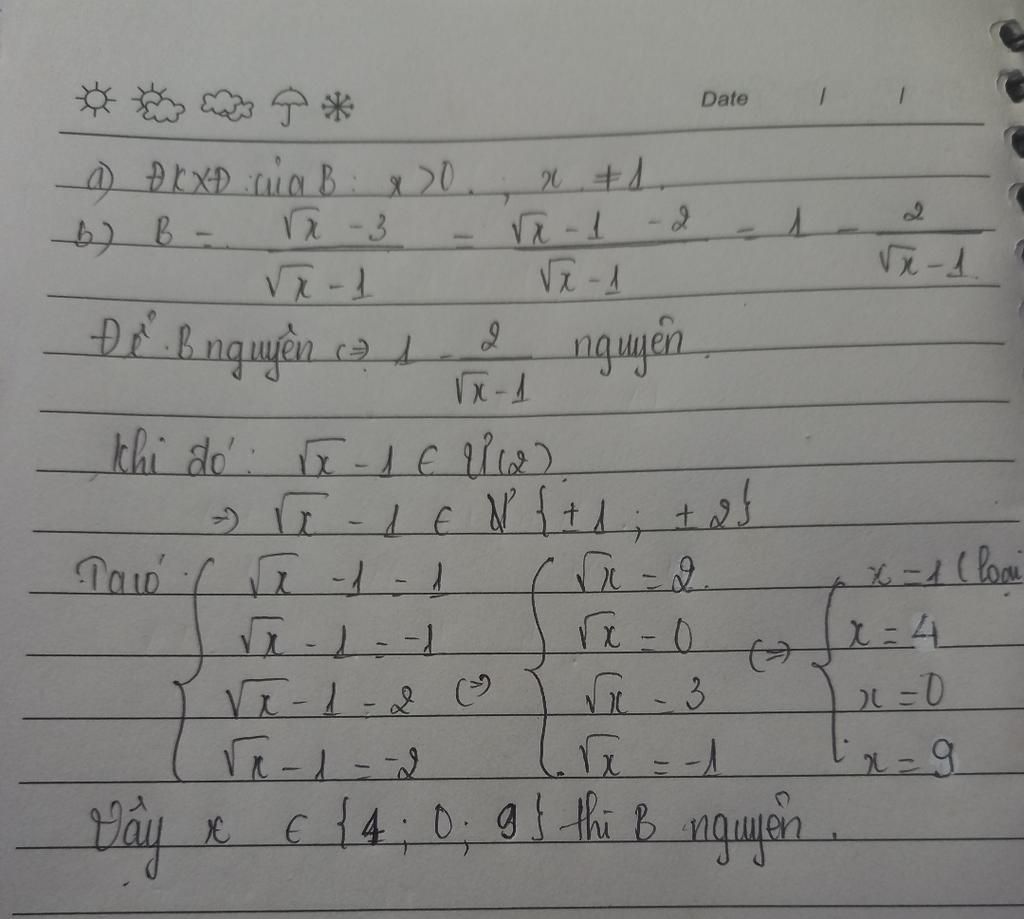 Date / /
a) ĐKXĐ của B: x > 0 ; x ≠ 1.
b) B = (√x - 3)/(√x - 1) = (√x - 1 - 2)/(√x - 1) = 1 - 2/(√x - 1)
Để B nguyên (=) 1 - 2/(√x - 1) nguyên.
Khi đó: √x - 1 ∈ Ư(2)
=) √x - 1 ∈ {±1 ; ±2}
Ta có: { √x - 1 = 1 { √x = 2. { x = 1 (loại
√x - 1 = -1 √x = 0 (=) x = 4
√x - 1 = 2 (=) √x = 3 x = 0
√x - 1 = -2 √x = -1 x = 9
Vậy x ∈ {4 ; 0 ; 9} thì B nguyên.